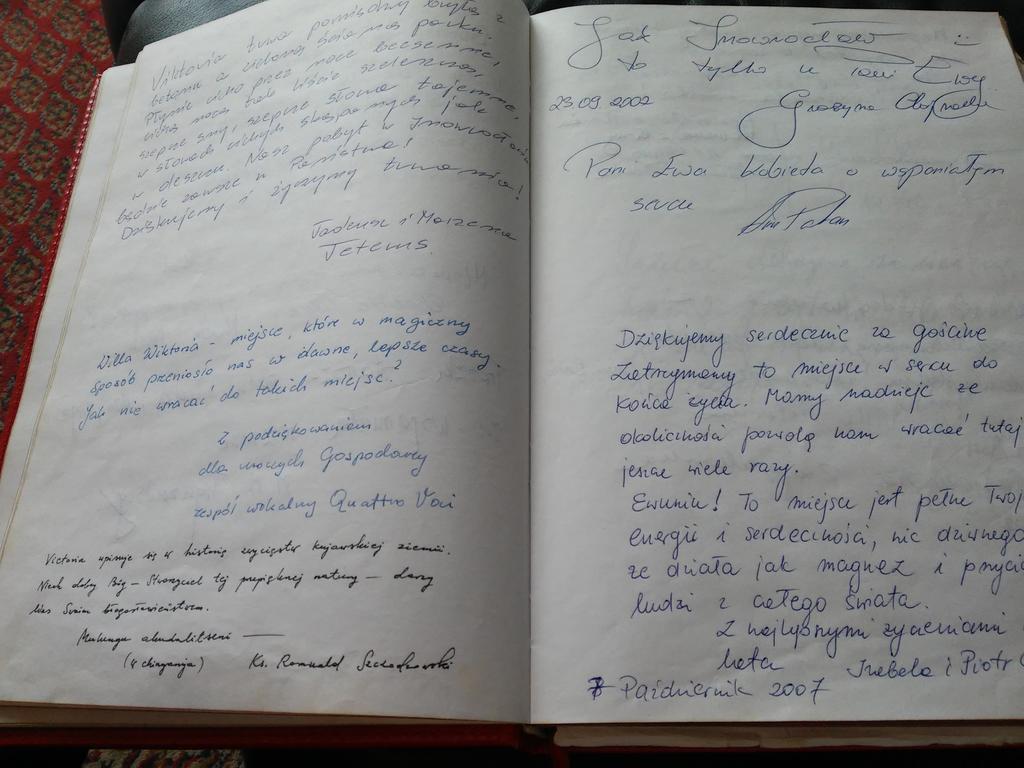 Wiktoria tuwa pomiędzy bryłą z
betonu a zieloną ścianą parku.
Płynie cicho przez noce bezsenne,
ciszą nocną tak liście szeleszczą,
szepcze sny, szepcze słowa tajemne,
w słowach cichych skąpanych jak
w deszczu. Nasz pobyt w Inowrocławiu
będzie zawsze u Państwa!
Dziękujemy i życzymy trwania!
Tadeusz i Marzena
Tetems.
Willa Wiktoria - miejsce, które w magiczny
sposób przeniosło nas w dawne, lepsze czasy.
Jak nie wracać do takich miejsc?
Z podziękowaniem
dla Gospodarzy
zespół wokalny Quattro Voci
Victoria wpisuje się w historię zwycięstw kujawskiej ziemi.
Niech dobry Bóg - Stworzyciel tej przepięknej natury - darzy
Was Swoim błogosławieństwem.
(4 chinyanja) Ks. Romuald
Jak Inowrocław
to tylko u Pani Ewy
23.09.2002 Grażyna
Pani Ewa kobieta o wspaniałym
sercu
Dziękujemy serdecznie za gościnę
Zatrzymamy to miejsce w sercu do
końca życia. Mamy nadzieję że
okoliczności pozwolą nam wracać tutaj
jeszcze wiele razy.
Ewuniu! To miejsce jest pełne Twoj
energii i serdeczności, nic dziwnego
że działa jak magnez i przycią
ludzi z całego świata.
Z najlepszymi życzeniami
Beata Izabela i Piotr
7 Październik 2007